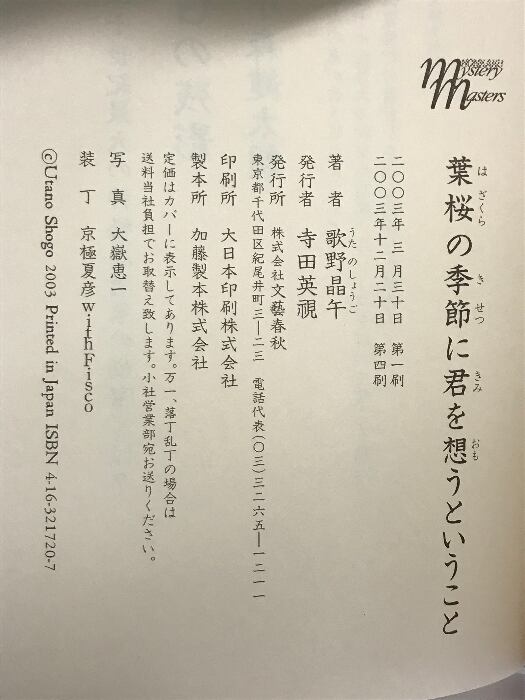 HONKAKU
Mystery
Masters
葉桜の季節に君を想うということ
はざくら
きせつ
きみ
おも
二〇〇三年 三 月三十日 第一刷
二〇〇三年十二月二十日 第四刷
著 者 歌野晶午
うたのしょうご
発行者 寺田英視
発行所 株式会社文藝春秋
東京都千代田区紀尾井町三―二三 電話代表(〇三)三二六五―一二一一
印刷所 大日本印刷株式会社
製本所 加藤製本株式会社
定価はカバーに表示してあります。万一、落丁乱丁の場合は
送料当社負担でお取替え致します。小社営業部宛お送りください。
写 真 大嶽恵一
装 丁 京極夏彦with Fisco
©Utano Shogo 2003 Printed in Japan ISBN 4-16-321720-7